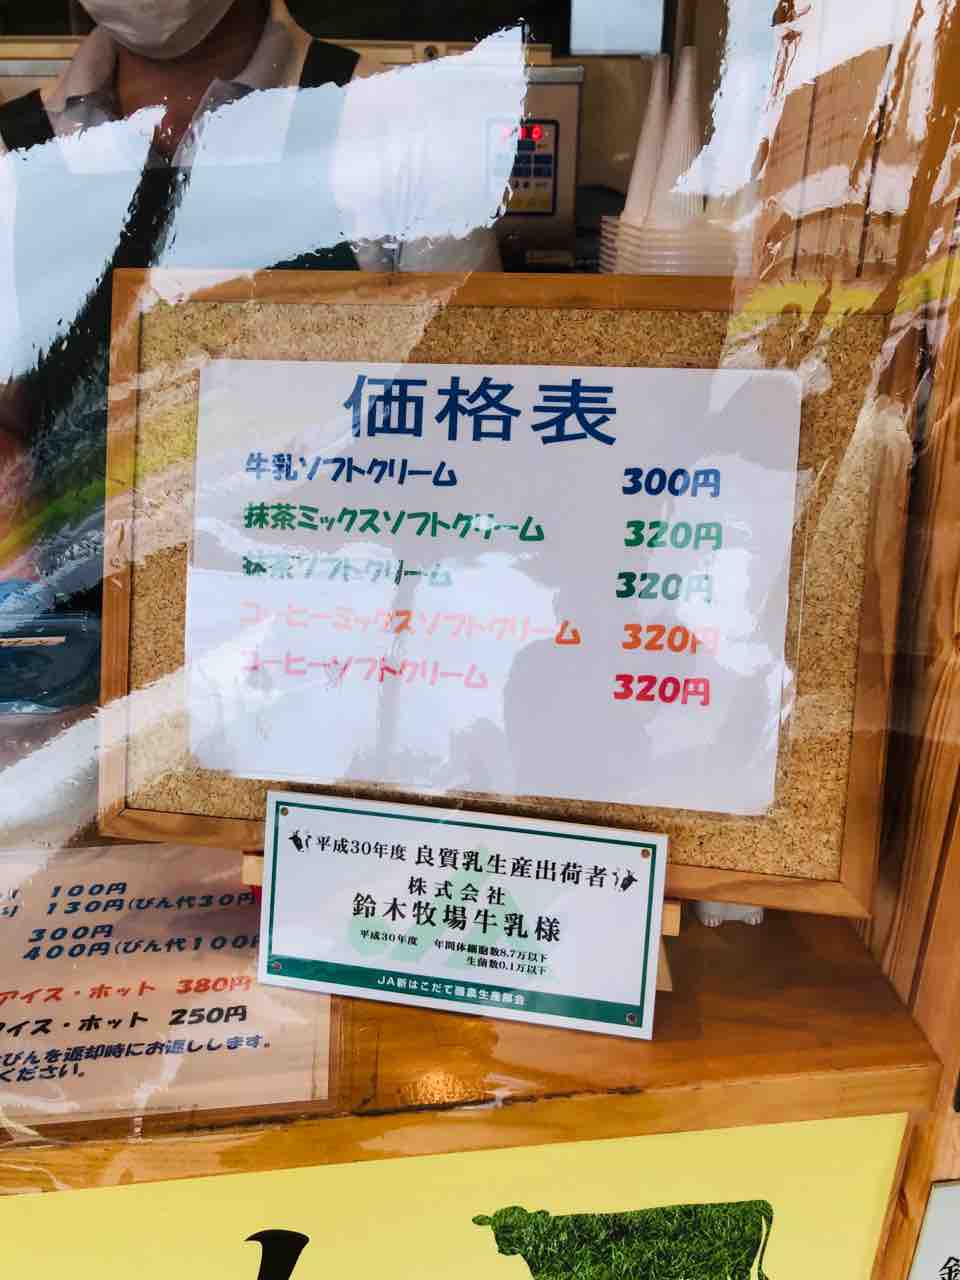 価格表
牛乳ソフトクリーム 300円
抹茶ミックスソフトクリーム 320円
抹茶ソフトクリーム 320円
コーヒーミックスソフトクリーム 320円
コーヒーソフトクリーム 320円
平成30年度 良質乳生産出荷者
株式会社
鈴木牧場牛乳様
平成30年度 年間体細胞数8.7万以下
生菌数0.1万以下
JA新はこだて酪農生産部会
100円
130円(びん代30円
300円
400円(びん代100円
アイス・ホット 380円
アイス・ホット 250円
びんを返却時にお返しします。
ください。